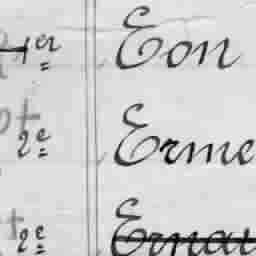 1er Eon
2e Erme
2e Ernau